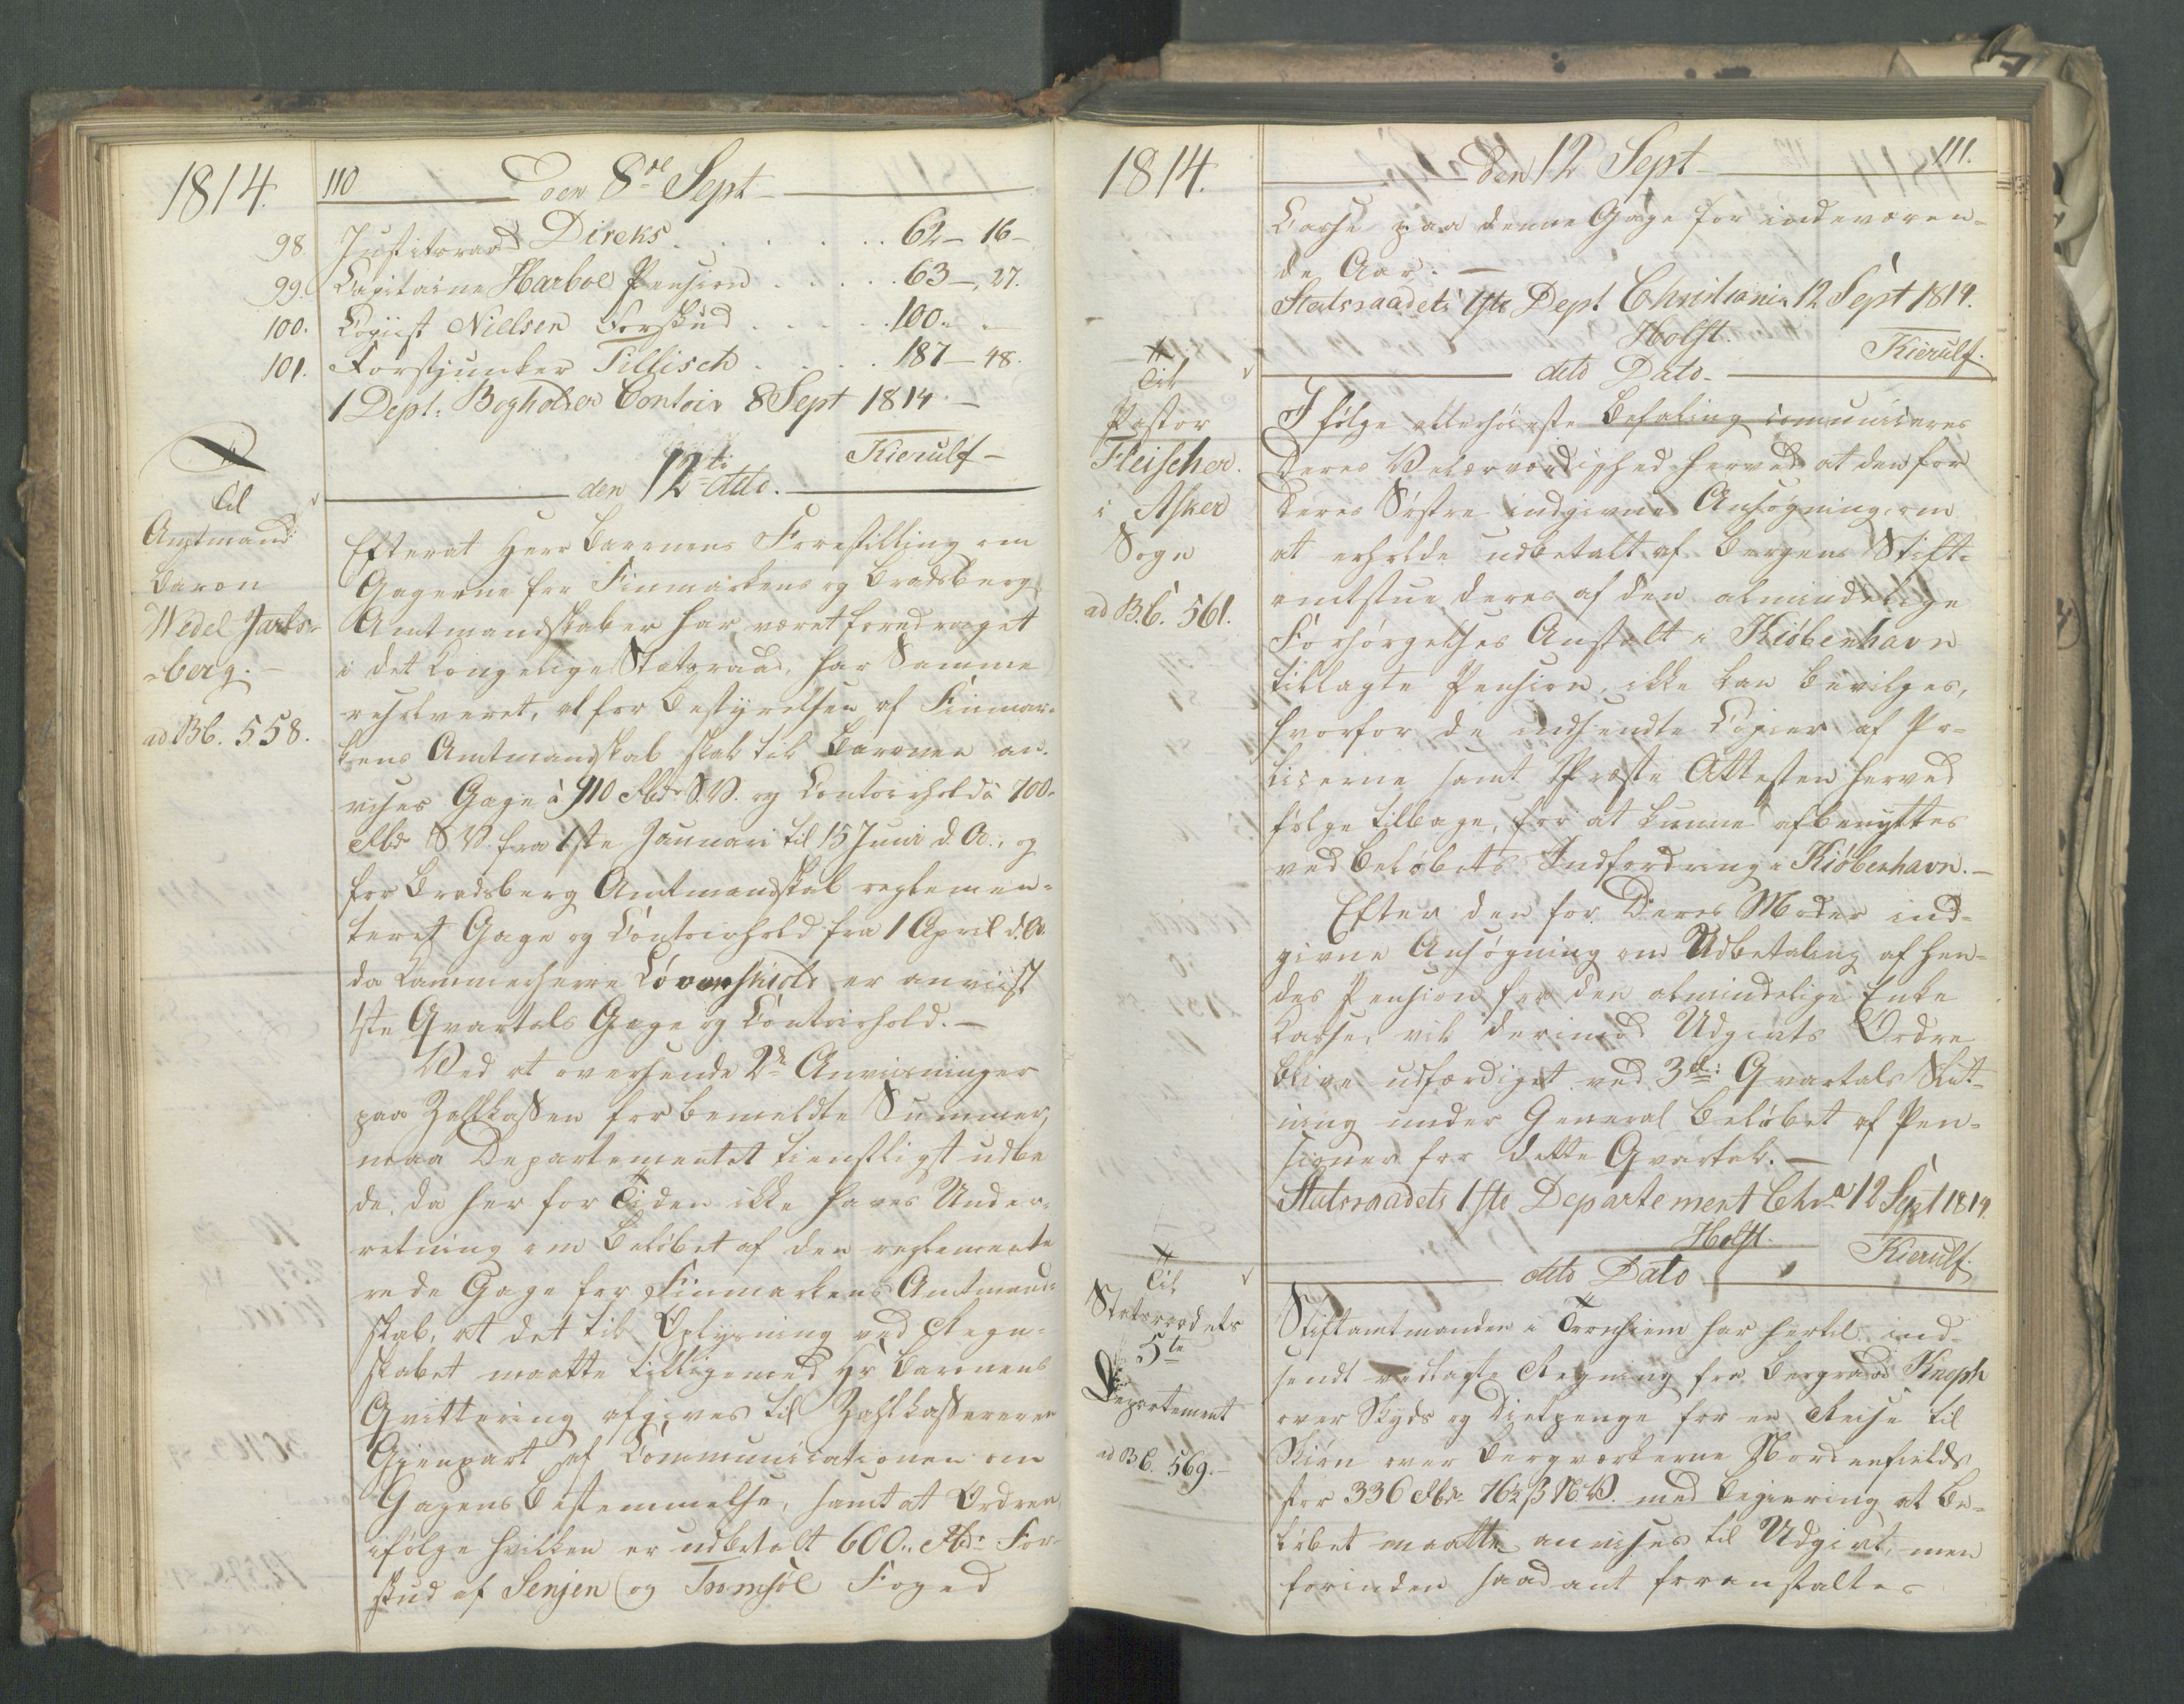 1814.
110
Den 8de Sept
98. Justitsraad Direks . . . . . 62 – 16 –
99. Capitaine Harboe Pension . . . . . 63 –, 27.
100. Copiist Nielsen Forskud . . . . 100 „ –
101. Forstjunker Tillisch . . . . 187 – 48.
1 Dept: Bogholder Contoir 8 Sept 1814 –
Kierulf –
den 12te dito.
Til
Amtmand
Baron
Wedel Jarls-
-berg. –
ad B6. 558.
Efterat Herr Baronens Forestilling om
Gagerne for Finmarkens og Bradsberg
Amtmandskaber har været foredraget
i det Kongelige Statsraad, har Samme
resolveret, at for Bestyrelsen af Finmar-
kens Amtmandskab skal til Baronen an-
vises Gage à 910 Rbdr S.V. og Contoirhold à 700
Rbdr S.V. fra 1ste Januari til 15 Juni d. A., og
for Bradsberg Amtmandskab reglemen-
teret Gage og Contoirhold fra 1 April d. A.
da Kammerherre Løvenskiold er anviist
1ste Qvartals Gage og Contoirhold. –
Ved at oversende 2de Anviisninger
paa Zahlkassen for bemeldte Summer,
maa Departementet tienstligst udbe
de, da her for Tiden ikke haves Under-
retning om Beløbet af den reglemente
rede Gage for Finmarkens Amtmand-
skab, at det til Oplysning ved Regn-
skabet maatte tilligemed Hr Baronens
Qvittering afgives til Zahlkassereren
Gienpart af Communicationen om
Gagens Bestemmelse, samt at Ordren
ifølge hvilken er udbetalt 600 „ Rbdr For-
skud af Senjen og Tromsöe Foged
1814.
Den 12 Sept
111.
Casse paa denne Gage for indeværen-
de Aar. –
Statsraadets 1ste Dept Christiania 12 Sept 1814.
Holst.
Kierulf.
dito Dato
Til
Pastor
Fleischer.
i Asker
Sogn
ad B.6. 561.
I følge allerhøieste Befaling comuniceres
Deres Velærværdighed herved at den for
Deres Søstre indgivne Ansøgning, om
at erholde udbetalt af Bergens Stift-
amtstue deres af den almindelige
Forsørgelses Anstalt i Kiøbenhavn
tillagte Pension, ikke kan bevilges,
hvorfor de indsendte Copier af Po-
licerne samt Præste Attesten herved
følge tilbage, for at kunne afbenyttes
ved Beløbets Indfordring i Kiøbenhavn. –
Efter den for Deres Moder ind-
givne Ansøgning om Udbetaling af hen-
des Pension fra den almindelige Enke
Casse, vil derimod Udgivts Ordre
blive udfærdiget ved 3de: Qvartals Slut-
ning under General Beløbet af Pen-
sioner for dette Qvartal. –
Statsraadets 1ste Departement Chra 12 Sept 1814.
Holst.
Kierulf.
dito Dato
Til
Statsraadets
5te
Departement
ad B6. 569. –
Stiftamtmanden i Tronhiem har hertil ind-
sendt vedlagte Regning fra Bergraad Knoph
over Skyds og Dietpenge for en Reise til
Skien over Bergværkerne Nordenfields
stor 336 Rbdr 76½ ß N.V. med Begiering at Be-
løbet maatte anvises til Udgivt, men
forinden saadant foranstaltes